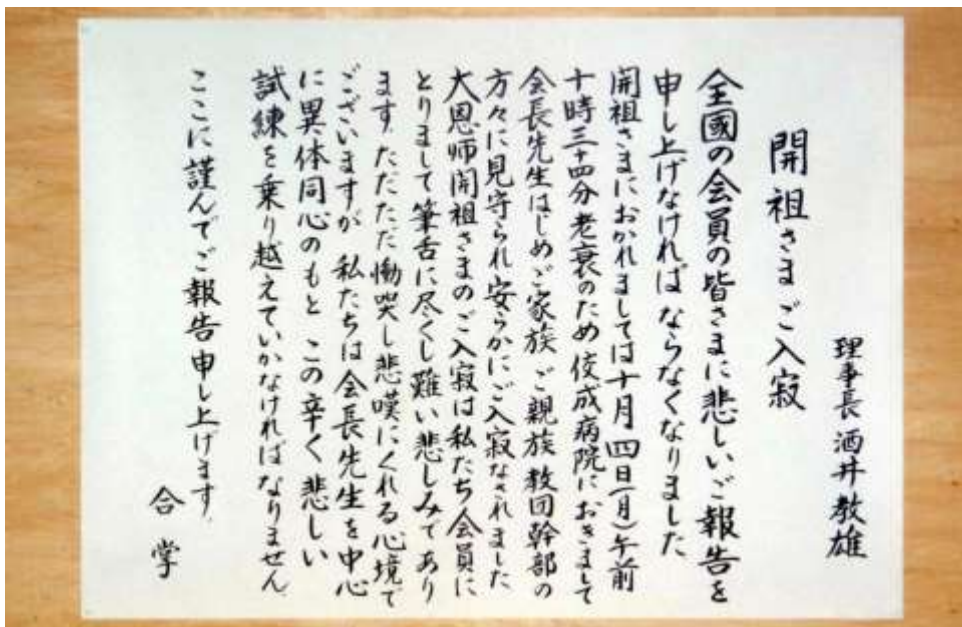 理事長 酒井教雄
開祖さまご入寂
全國の会員の皆さまに悲しいご報告を
申し上げなければならなくなりました
開祖さまにおかれましては十月四日(月)午前
十時三十四分老衰のため佼成病院におきまして
会長先生はじめご家族 ご親族 教団幹部の
方々に見守られ安らかにご入寂なされました
大恩師開祖さまのご入寂は私たち会員に
とりまして筆舌に尽くし難い悲しみであり
ます。ただただ慟哭し悲嘆にくれる心境で
ございますが 私たちは会長先生を中心
に異体同心のもと この辛く悲しい
試練を乗り越えていかなければなりません
ここに謹んでご報告申し上げます。
合掌